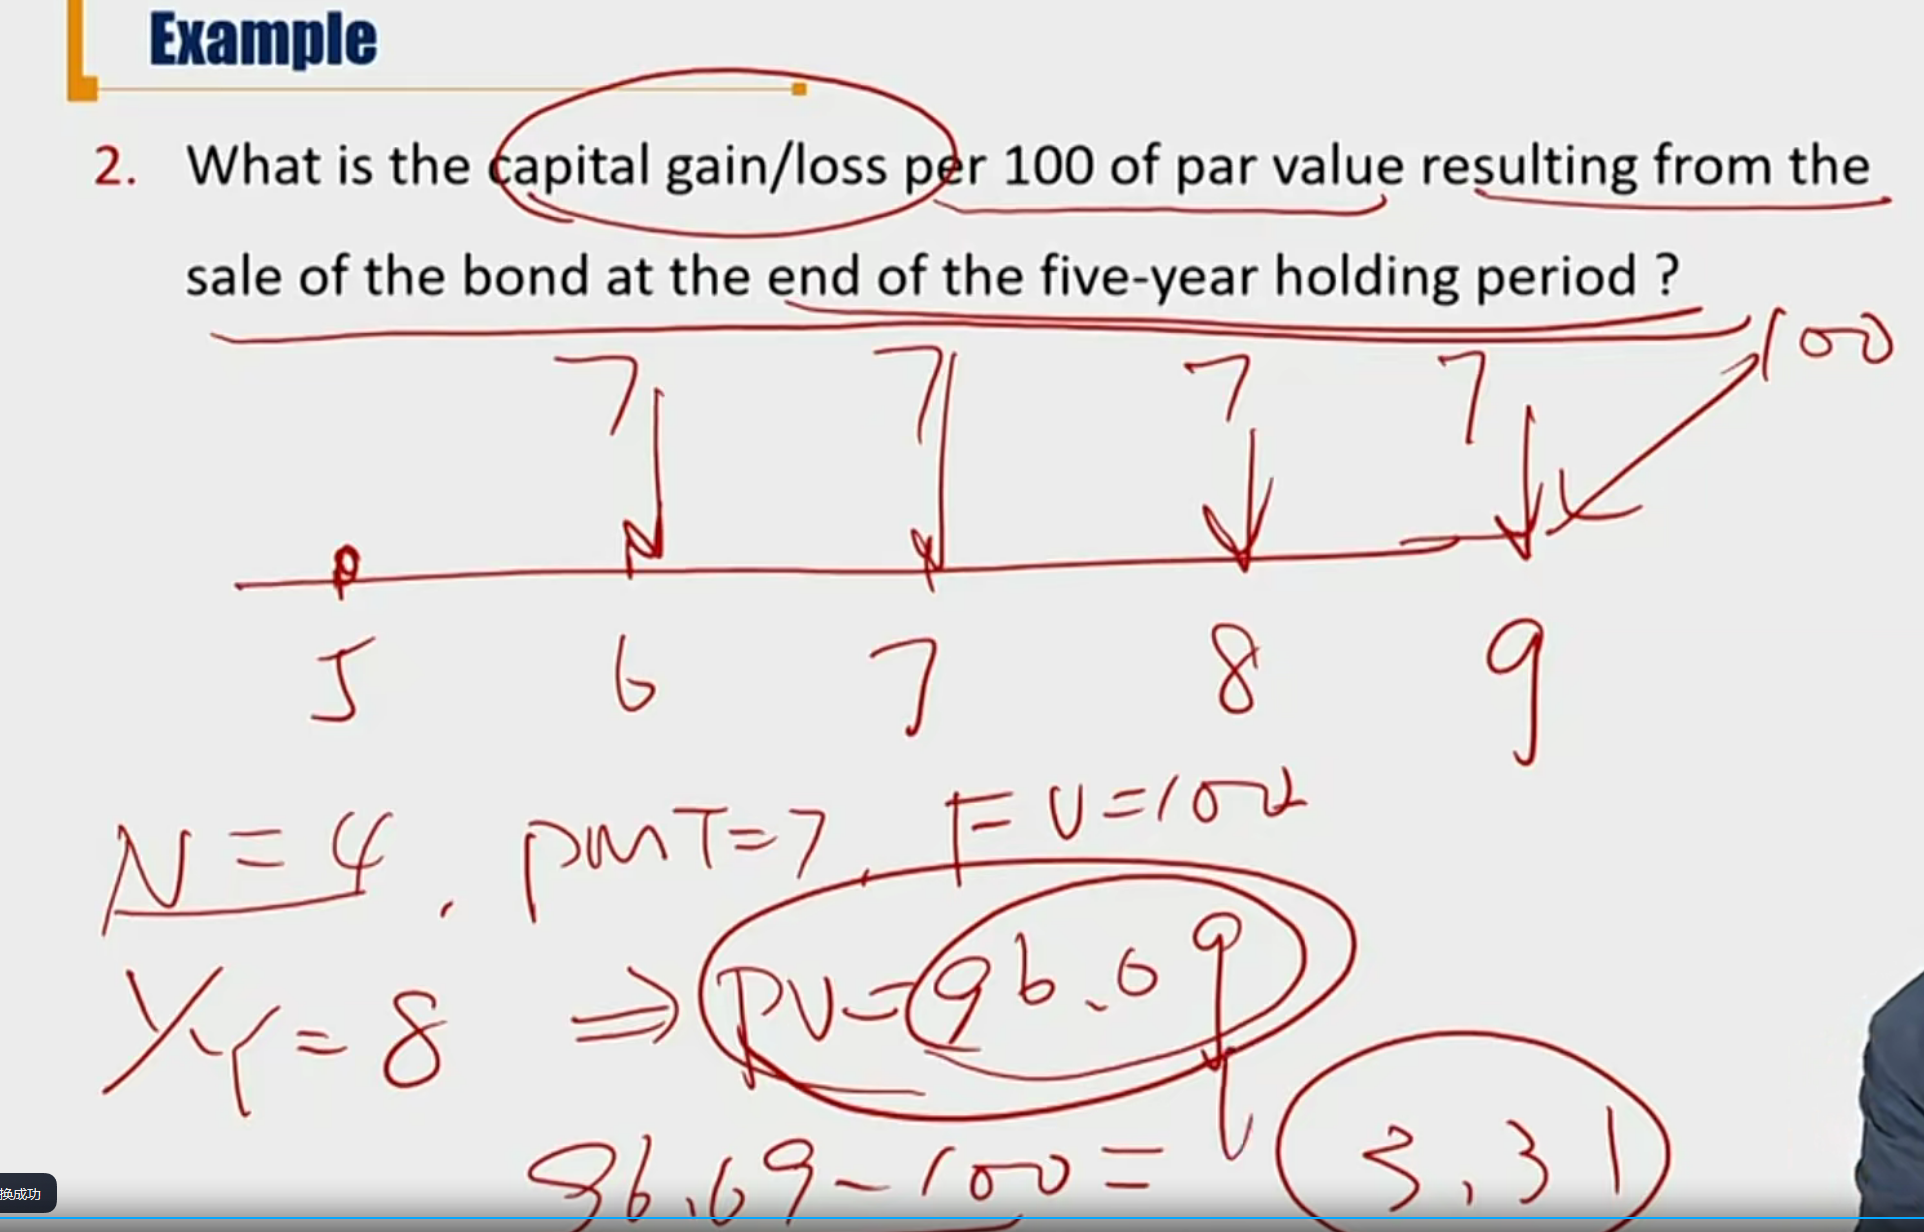 Example
2. What is the capital gain/loss per 100 of par value resulting from the
sale of the bond at the end of the five-year holding period ?
100
7 7 7 7
5 6 7 8 9
N=4, PMT=7, FV=100
I/Y=8 ⇒ PV=96.69
96.69-100= 3.31
换成功